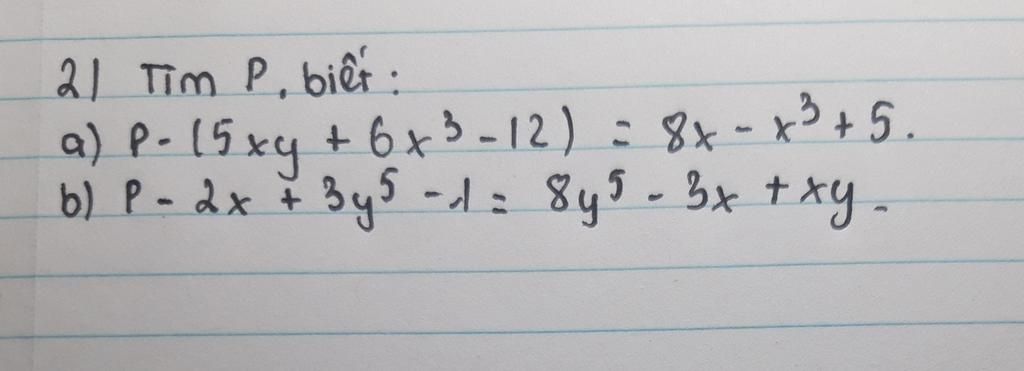 2) Tìm P, biết:
a) P - (5xy + 6x³ - 12) = 8x - x³ + 5.
b) P - 2x + 3y⁵ - 1 = 8y⁵ - 3x + xy.